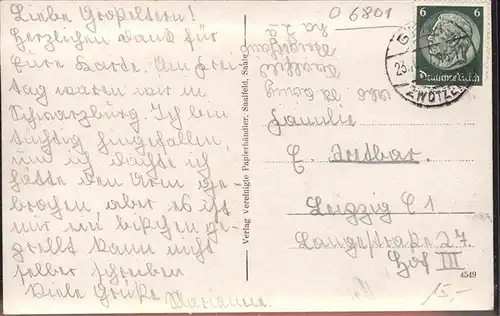 Liebe Großeltern!
Herzlichen Dank für
Eure Karte. Am Frei
tag waren wir in
Schwarzburg. Ich bin
tüchtig hingefallen,
und ich dachte ich
hätte den Arm ge
brochen, aber es ist
mir ein bißchen ge
prellt kann nicht
selber schreiben
Viele Grüße Marianne.
Verlag Vereinigte Papierhändler, Saalfeld, Saale
O 6801
6
Deutsches Reich
ZWÖTZEN
Familie
Leipzig C 1
Langestraße 27
Hof III
4549
15,-